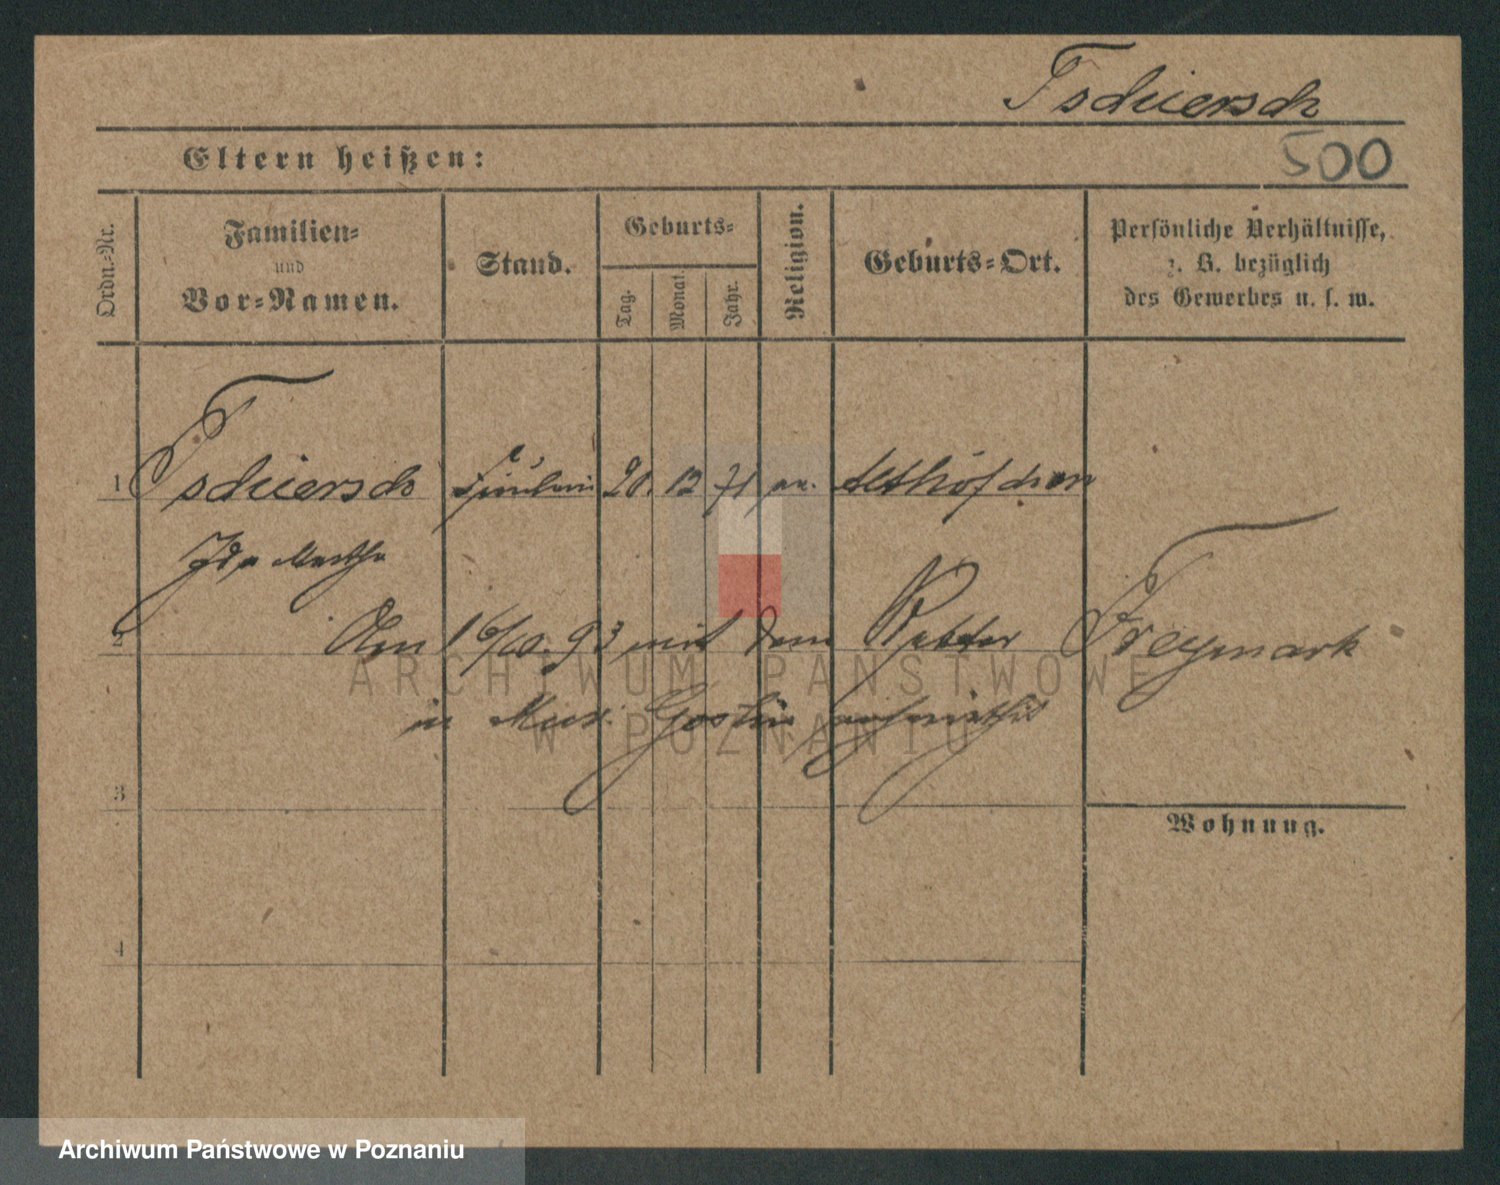 Tschiersch
Eltern heißen:
500
Ordn.-Nr.
Familien-
und
Vor-Namen.
Stand.
Geburts-
Tag.
Monat.
Jahr.
Religion.
Geburts-Ort.
Persönliche Verhältnisse,
z. B. bezüglich
des Gewerbes u. s. w.
1 Tschiersch Fräulein 20. 12 71 ev. Althöfchen
Ida Martha
2 Am 16/10. 93 mit dem Freymark
in Gostin
ARCHIWUM PAŃSTWOWE
W POZNANIU
3
Wohnung.
4
Archiwum Państwowe w Poznaniu